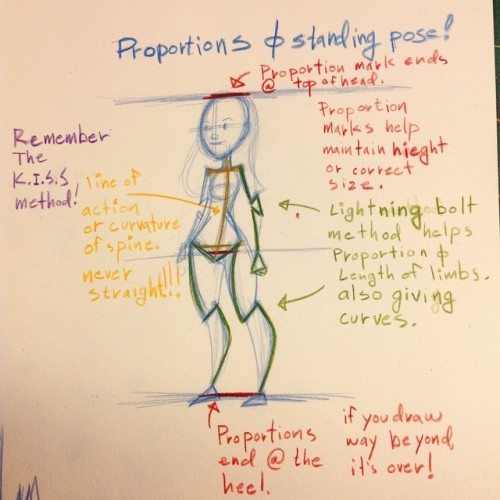 Proportions & standing pose!
Proportion mark ends
@ top of head.
Remember
The
K.I.S.S
method!
line of
action
or curvature
of spine.
never
straight!!!
Proportion
marks help
maintain hieght
or correct
size.
Lightning bolt
method helps
Proportion &
Length of limbs.
also giving
curves.
Proportions
end @ the
heel.
if you draw
way beyond
it's over!